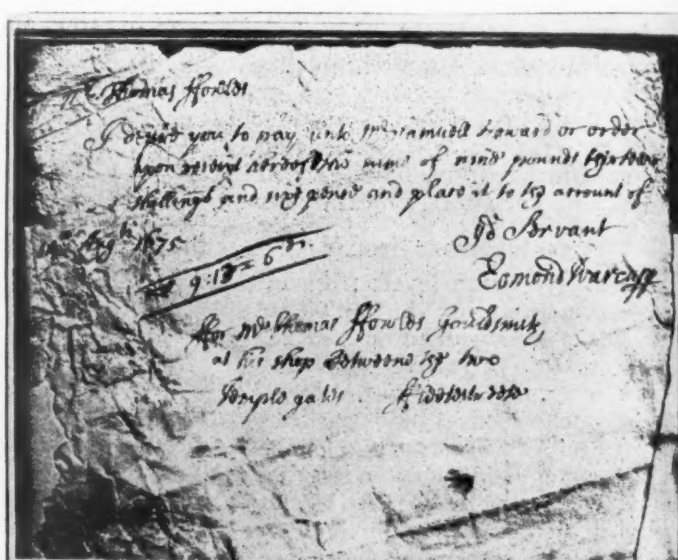 Thomas ffowles
I desire you to pay unto Mr Samuell Howard or order
upon receipt hereof the sume of nine pounds thirteen
shillings and six pence and place it to the account of
Yor Servant
14th Augth 1675
Edmond Warcupp
9:13= 6d.
ffor Mr Thomas ffowles Gouldsmith
at his shop betweene the two
temple gates ffleetestreete